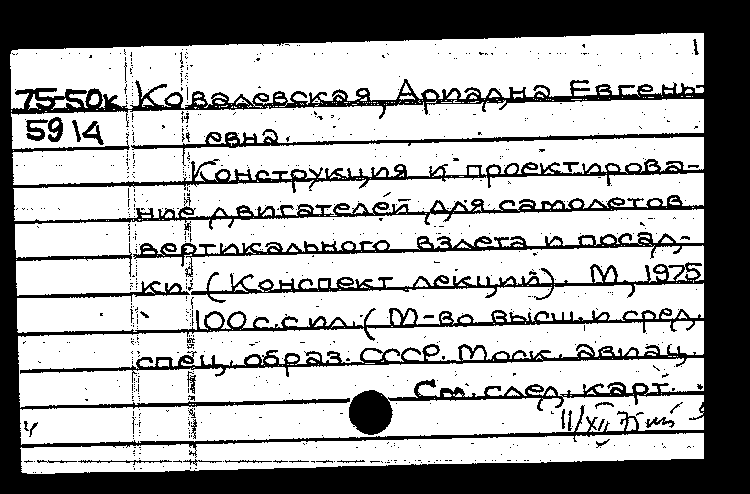 1
75-50к Ковалевская, Ариадна Евгень-
5914 евна.
Конструкция и проектирова-
ние двигателей для самолетов
вертикального взлета и посад-
ки. (Конспект лекций). М., 1975
100 с. с ил. (М-во высш. и сред.
спец. образ. СССР. Моск. авиац.
См. след. карт.
II/XII 75